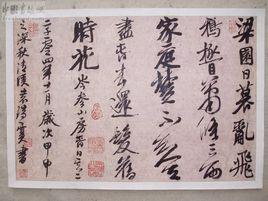 梁園日暮亂飛
鴉極目蕭條三兩
家庭樹不知人去
盡春來還發舊
時花 岑參山房春事之二
二〇〇四年十月歲次甲申
之深秋書